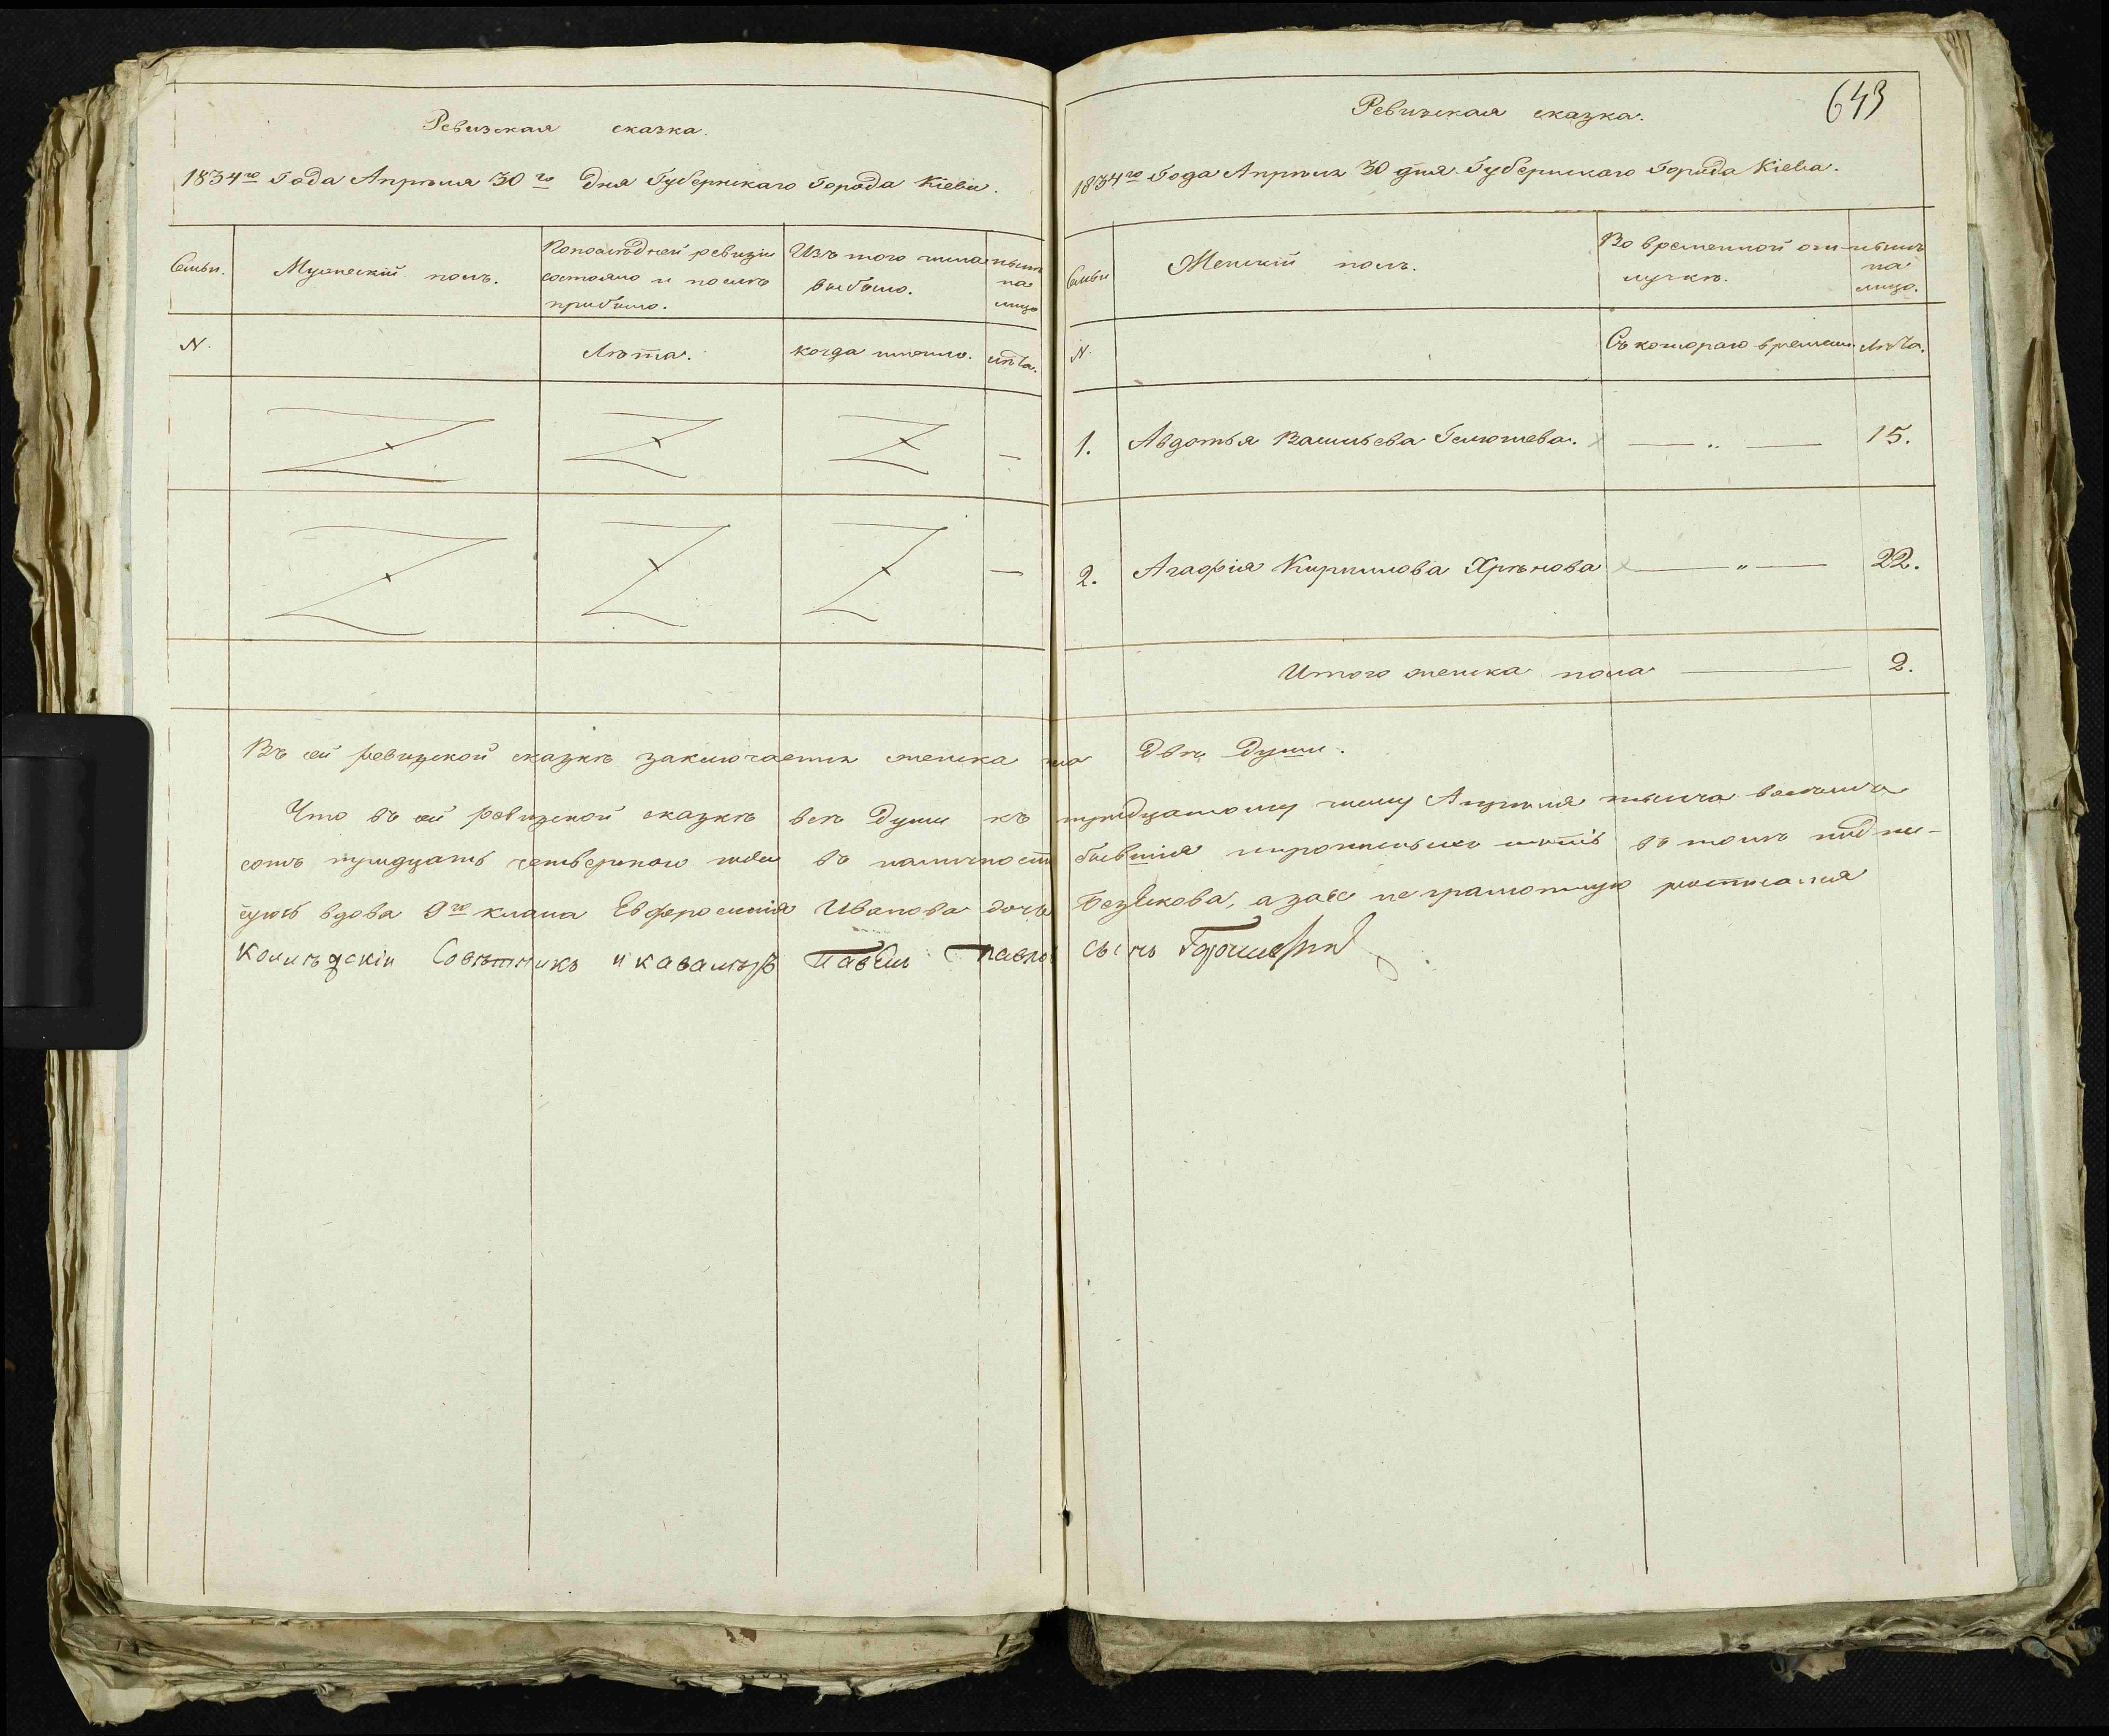 Ревизская сказка.
1834го Года Апрѣля 30го Дня Губернскаго Города Кіева.
Семьи.
Мужескій полъ.
По послѣдней ревизіи состояло и послѣ прибыло.
Изъ того числа выбыло.
нынѣ на лицо
N.
Лѣта.
когда имянно.
лѣта.
Ревизская сказка.
643
1834го Года Апрѣля 30 дня Губернскаго Города Кіева.
Семьи
Женскій полъ.
Во временной отлучкѣ.
нынѣ на лицо.
N.
Съ котораго времени.
Лѣта.
1. Авдотья Васильева 15.
2. Агафія Кирилова Хрѣнова 22.
Итого женска пола 2.
Въ сей ревизской сказкѣ заключается женска пола Двѣ Души.
Что въ сей ревизской сказкѣ всѣ Души къ тридцатому числу Апрѣля тысяча восемь
сотъ тридцать четвертого года въ наличности бывшія прописныхъ нѣтъ въ томъ подпи-
суюсь вдова 9го класа Евфросинія Иванова дочь а за нее неграмотную росписался
Колѣжскій Совѣтникъ и кавалѣръ Павелъ Павловъ сынъ